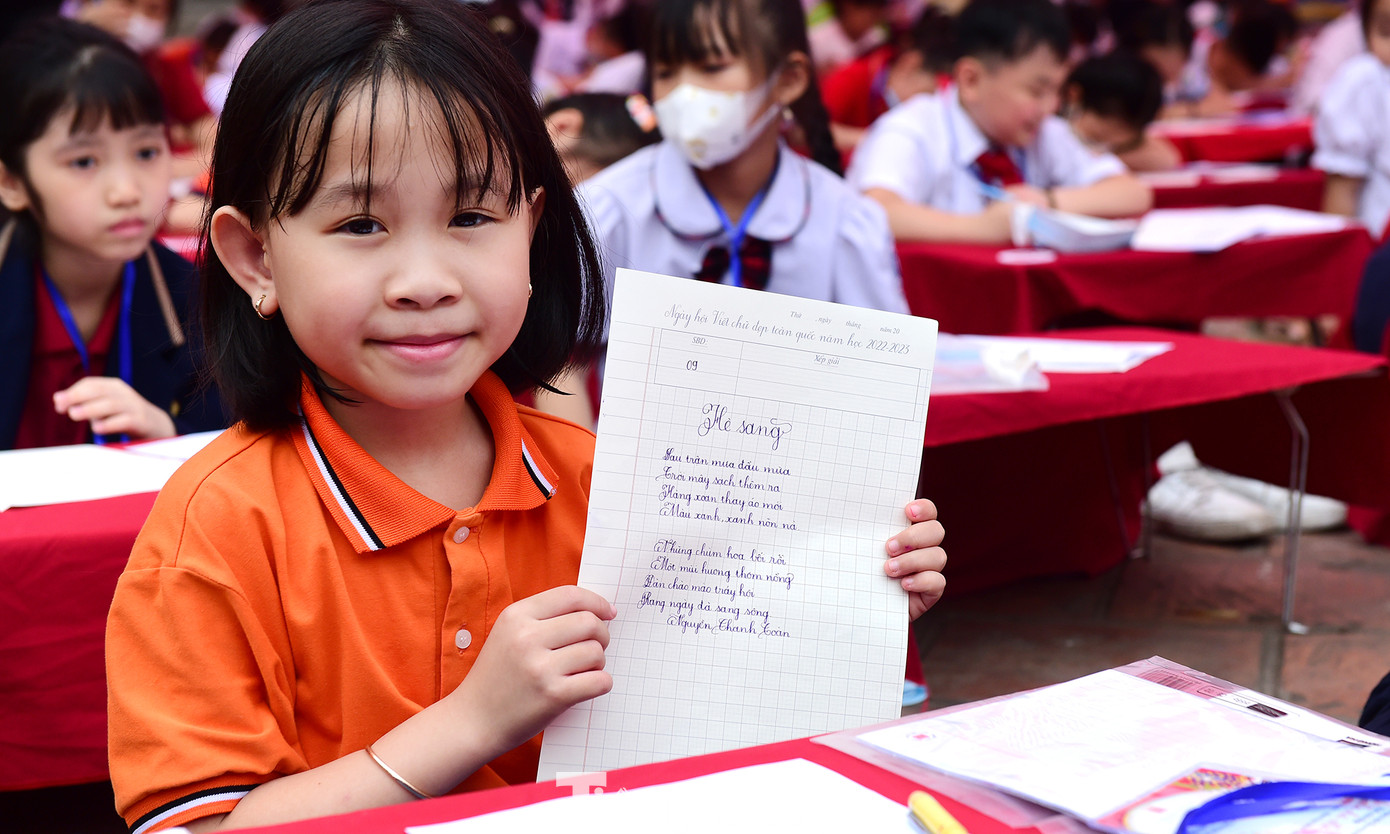 Thứ ngày tháng năm 20
Ngày hội Viết chữ đẹp toàn quốc năm học 2022-2023
SBD
Xếp giải
09
Hè sang
Sau trận mưa đầu mùa
Trời mây sạch thêm ra
Hàng xoan thay áo mới
Màu xanh, xanh nõn nà.
Những chùm hoa bối rối
Mời mùi hương thơm nồng
Đàn chào mào trẩy hội
Rang ngày đã sang sông
Nguyễn Thanh Toàn